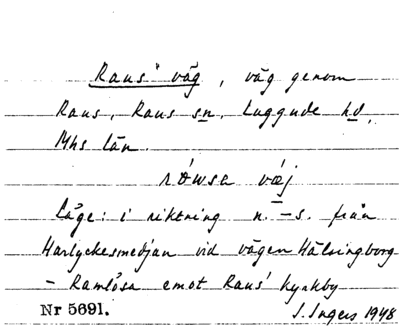 Raus' väg, väg genom
Raus, Raus sn. Luggude hd,
Mhs län.
rówsa vœj
Läge: i riktning n.–s. från
Harlyckesmedjan vid vägen Hälsingborg
– Ramlösa emot Raus' kyrkby
Nr 5691. I. Ingers 1948